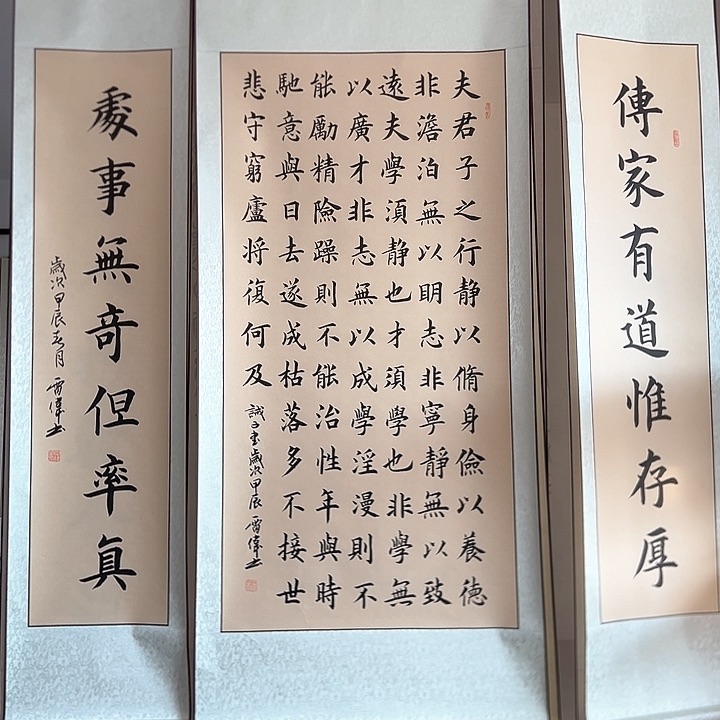 傳家有道惟存厚
夫君子之行静以脩身儉以養德
非澹泊無以明志非寧靜無以致
遠夫學須静也才須學也非學無
以廣才非志無以成學淫漫則不
能勵精險躁則不能治性年與時
馳意與日去遂成枯落多不接世
悲守窮廬将復何及 誡子書歲次甲辰 雷偉书
處事無奇但率真
歲次甲辰春月 雷偉书